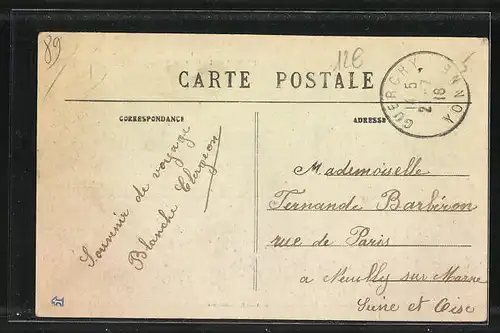 89
12€
CARTE POSTALE
GUERCHY
YONNE
14 5
2 - 7
18
CORRESPONDANCE
ADRESSE
Souvenir de voyage
Blanche Clergeon
Mademoiselle
Fernande Barbéron
rue de Paris
a Neuilly sur Marne
Seine et Oise